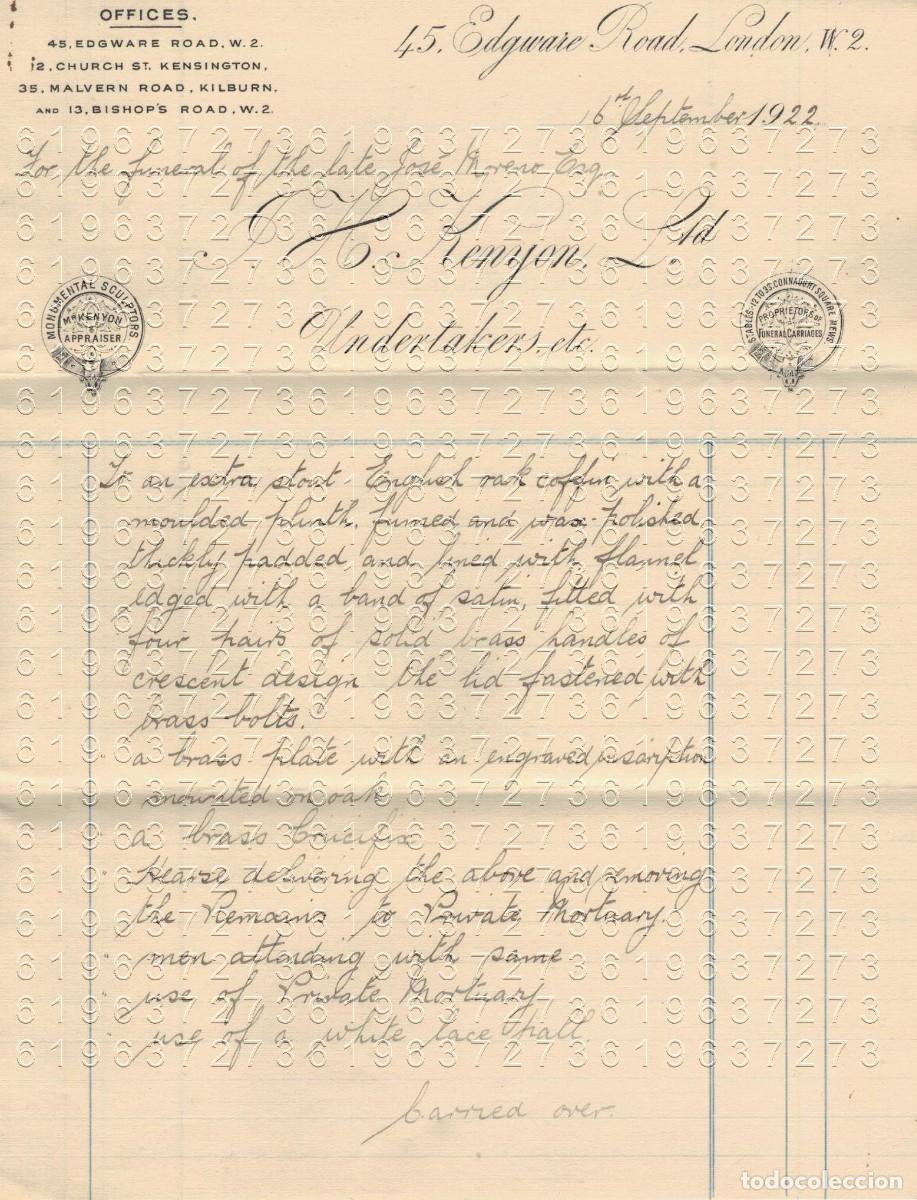 OFFICES.
45, EDGWARE ROAD, W.2.
12, CHURCH ST. KENSINGTON,
35, MALVERN ROAD, KILBURN,
AND 13, BISHOP'S ROAD, W.2.
45, Edgware Road, London, W.2.
September 1922
For the funeral of the late José Moreno Esq.
J. H. Kenyon, Ltd
MONUMENTAL SCULPTORS
Mr KENYON
APPRAISER
Undertakers, etc.
STABLES, 12 TO 35 CONNAUGHT SQUARE MEWS
PROPRIETORS OF
FUNERAL CARRIAGES
To an extra stout English oak coffin with a
moulded plinth, fumed and wax-polished
thickly padded and lined with flannel
edged with a band of satin, fitted with
four pairs of solid brass handles of
crescent design the lid fastened with
brass bolts.
" a brass plate with an engraved inscription
mounted on oak
" a brass Crucifix
" Hearse delivering the above and removing
the Remains to Private Mortuary.
" men attending with same
" use of Private Mortuary
" use of a white lace pall.
Carried over.
619637273
todocoleccion